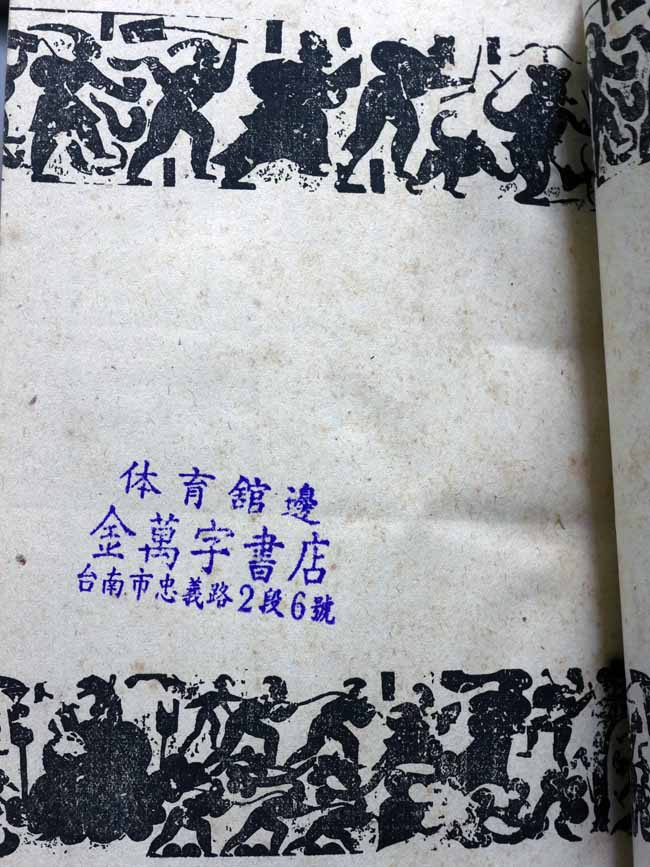 体育舘邊
金萬字書店
台南市忠義路2段6號